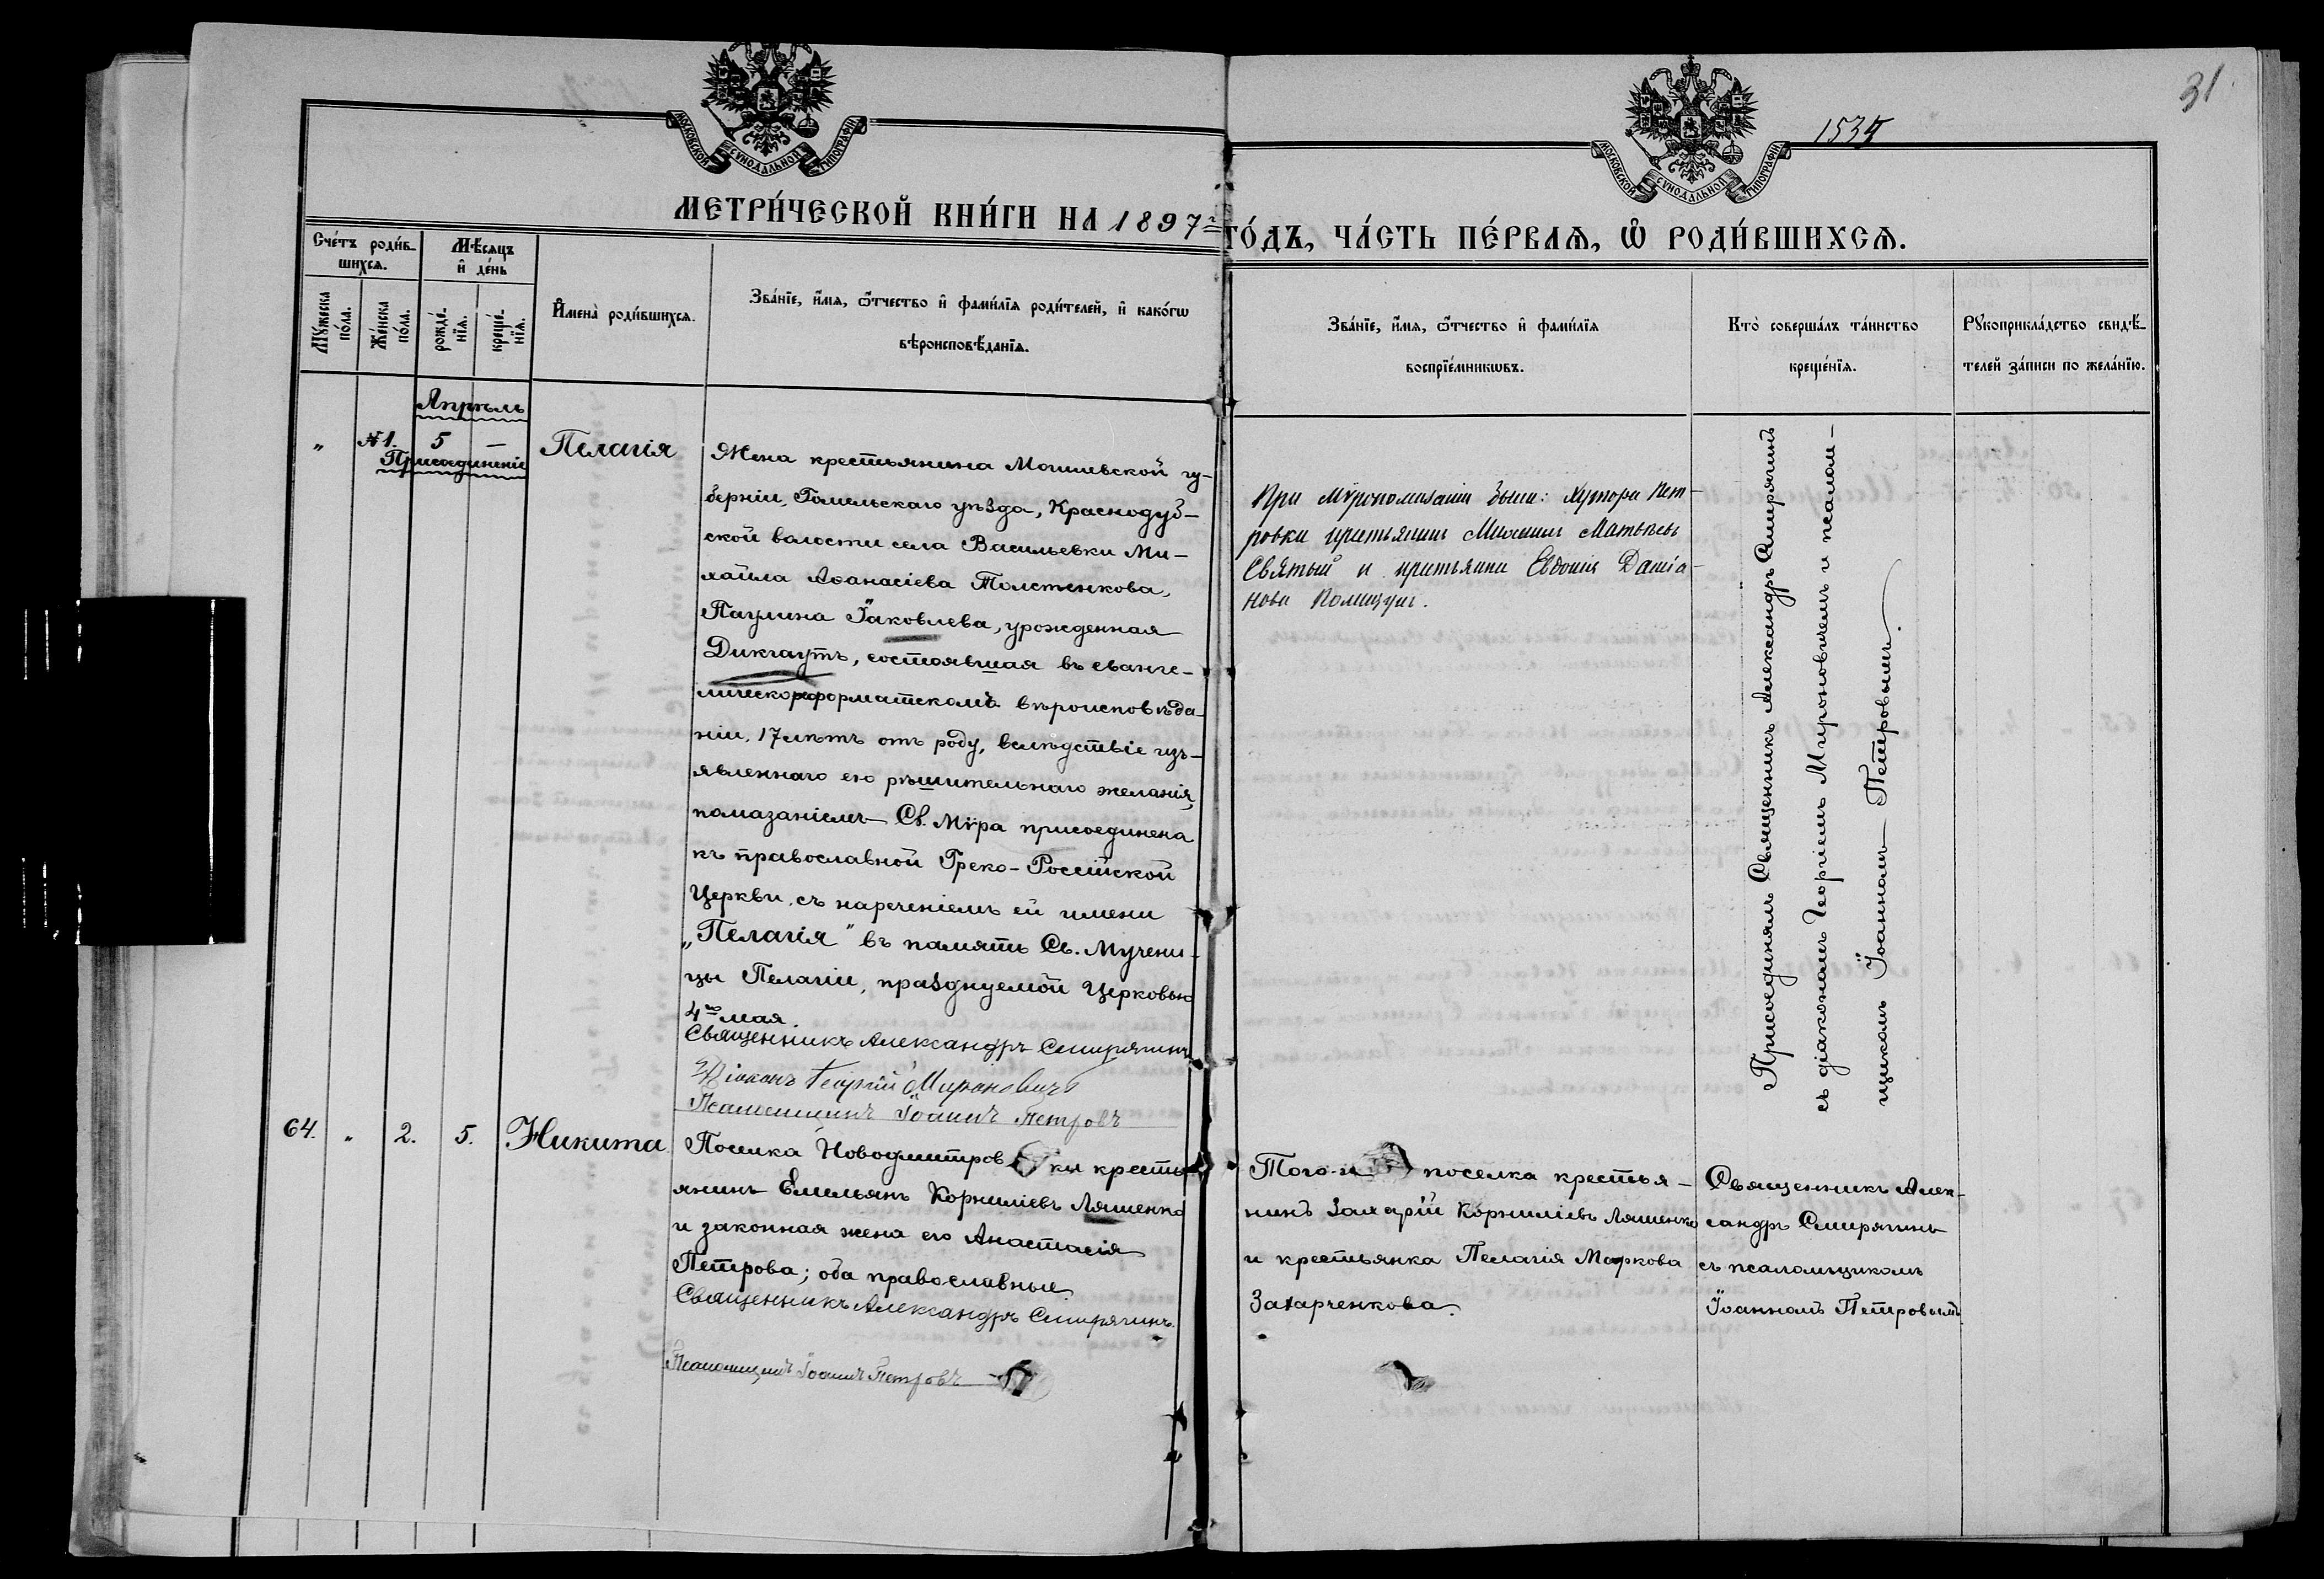 31
1534
МОСКОВСКОЙ СѴНОДАЛЬНОЙ ТИПОГРАФІИ
МОСКОВСКОЙ СѴНОДАЛЬНОЙ ТИПОГРАФІИ
МЕТРИ́ЧЕСКОЙ КНИ́ГИ НА 1897 й
ГО́ДЪ, ЧА́СТЬ ПЕ́РВАѦ, Ѡ҆ РОДИ́ВШИХСѦ.
Сче́тъ роди́в-
шихсѧ.
Мѣ́сѧцъ
и҆ де́нь
Мꙋ́жеска
по́ла.
Же́нска
по́ла.
рожде́-
нїѧ.
креще́-
нїѧ.
И҆мена̀ роди́вшихсѧ.
Зва́нїе, и҆́мѧ, ѻ҆́тчество и҆ фами́лїѧ роди́телей, и҆ како́гѡ
вѣроисповѣ́данїѧ.
Зва́нїе, и҆́мѧ, ѻ҆́тчество и҆ фами́лїѧ
воспрїе́мникѡвъ.
Кто̀ соверша́лъ та́инство
креще́нїѧ.
Рꙋкоприкла́дство свидѣ́-
телей за́писи по жела́нїю.
Апрѣль
" №1. 5 —
Присоединеніе
Пелагія
Жена крестьянина Могилевской гу-
берніи, Гомельскаго уѣзда, Краснодуб-
ской волости села Васильевки Ми-
хаила Аѳанасіева Толстенкова,
Паулина Іаковлева, урожденная
Дикгаутъ, состоявшая въ еванге-
лическореформатскомъ вѣроисповѣда-
ніи, 17 лѣтъ отъ роду, вслѣдствіе изъ-
явленнаго ею рѣшительнаго желанія,
помазаніемъ Св. Мѵра присоединена
къ православной Греко-Россійской
Церкви, съ нареченіемъ ей имени
„Пелагія" въ память Св. Мучени-
цы Пелагіи, празднуемой Церковью
4го мая.
Священникъ Александръ Смирягинъ
Діаконъ Георгій Мироновичъ
Псаломщикъ Іоаннъ Петровъ
При мѵропомазаніи были: хутора Пет-
ровки крестьянинъ Михаилъ Матѳеевъ
Святый и крестьянка Евдокія Даміа-
нова
Присоединялъ Священникъ Александръ Смирягинъ
съ діакономъ Георгіемъ Мироновичемъ и псалом-
щикомъ Іоанномъ Петровымъ.
64. " 2. 5. Никита
Поселка Новодмитровки кресть-
янинъ Емельянъ Корниліевъ Ляшенко
и законная жена его Анастасія
Петрова; оба православные.
Священникъ Александръ Смирягинъ.
Псаломщикъ Іоаннъ Петровъ
Того-же поселка крестья-
нинъ Захарій Корниліевъ Ляшенко
и крестьянка Пелагія Маркова
Захарченкова.
Священникъ Алек-
сандръ Смирягинъ
съ псаломщикомъ
Іоанномъ Петровымъ